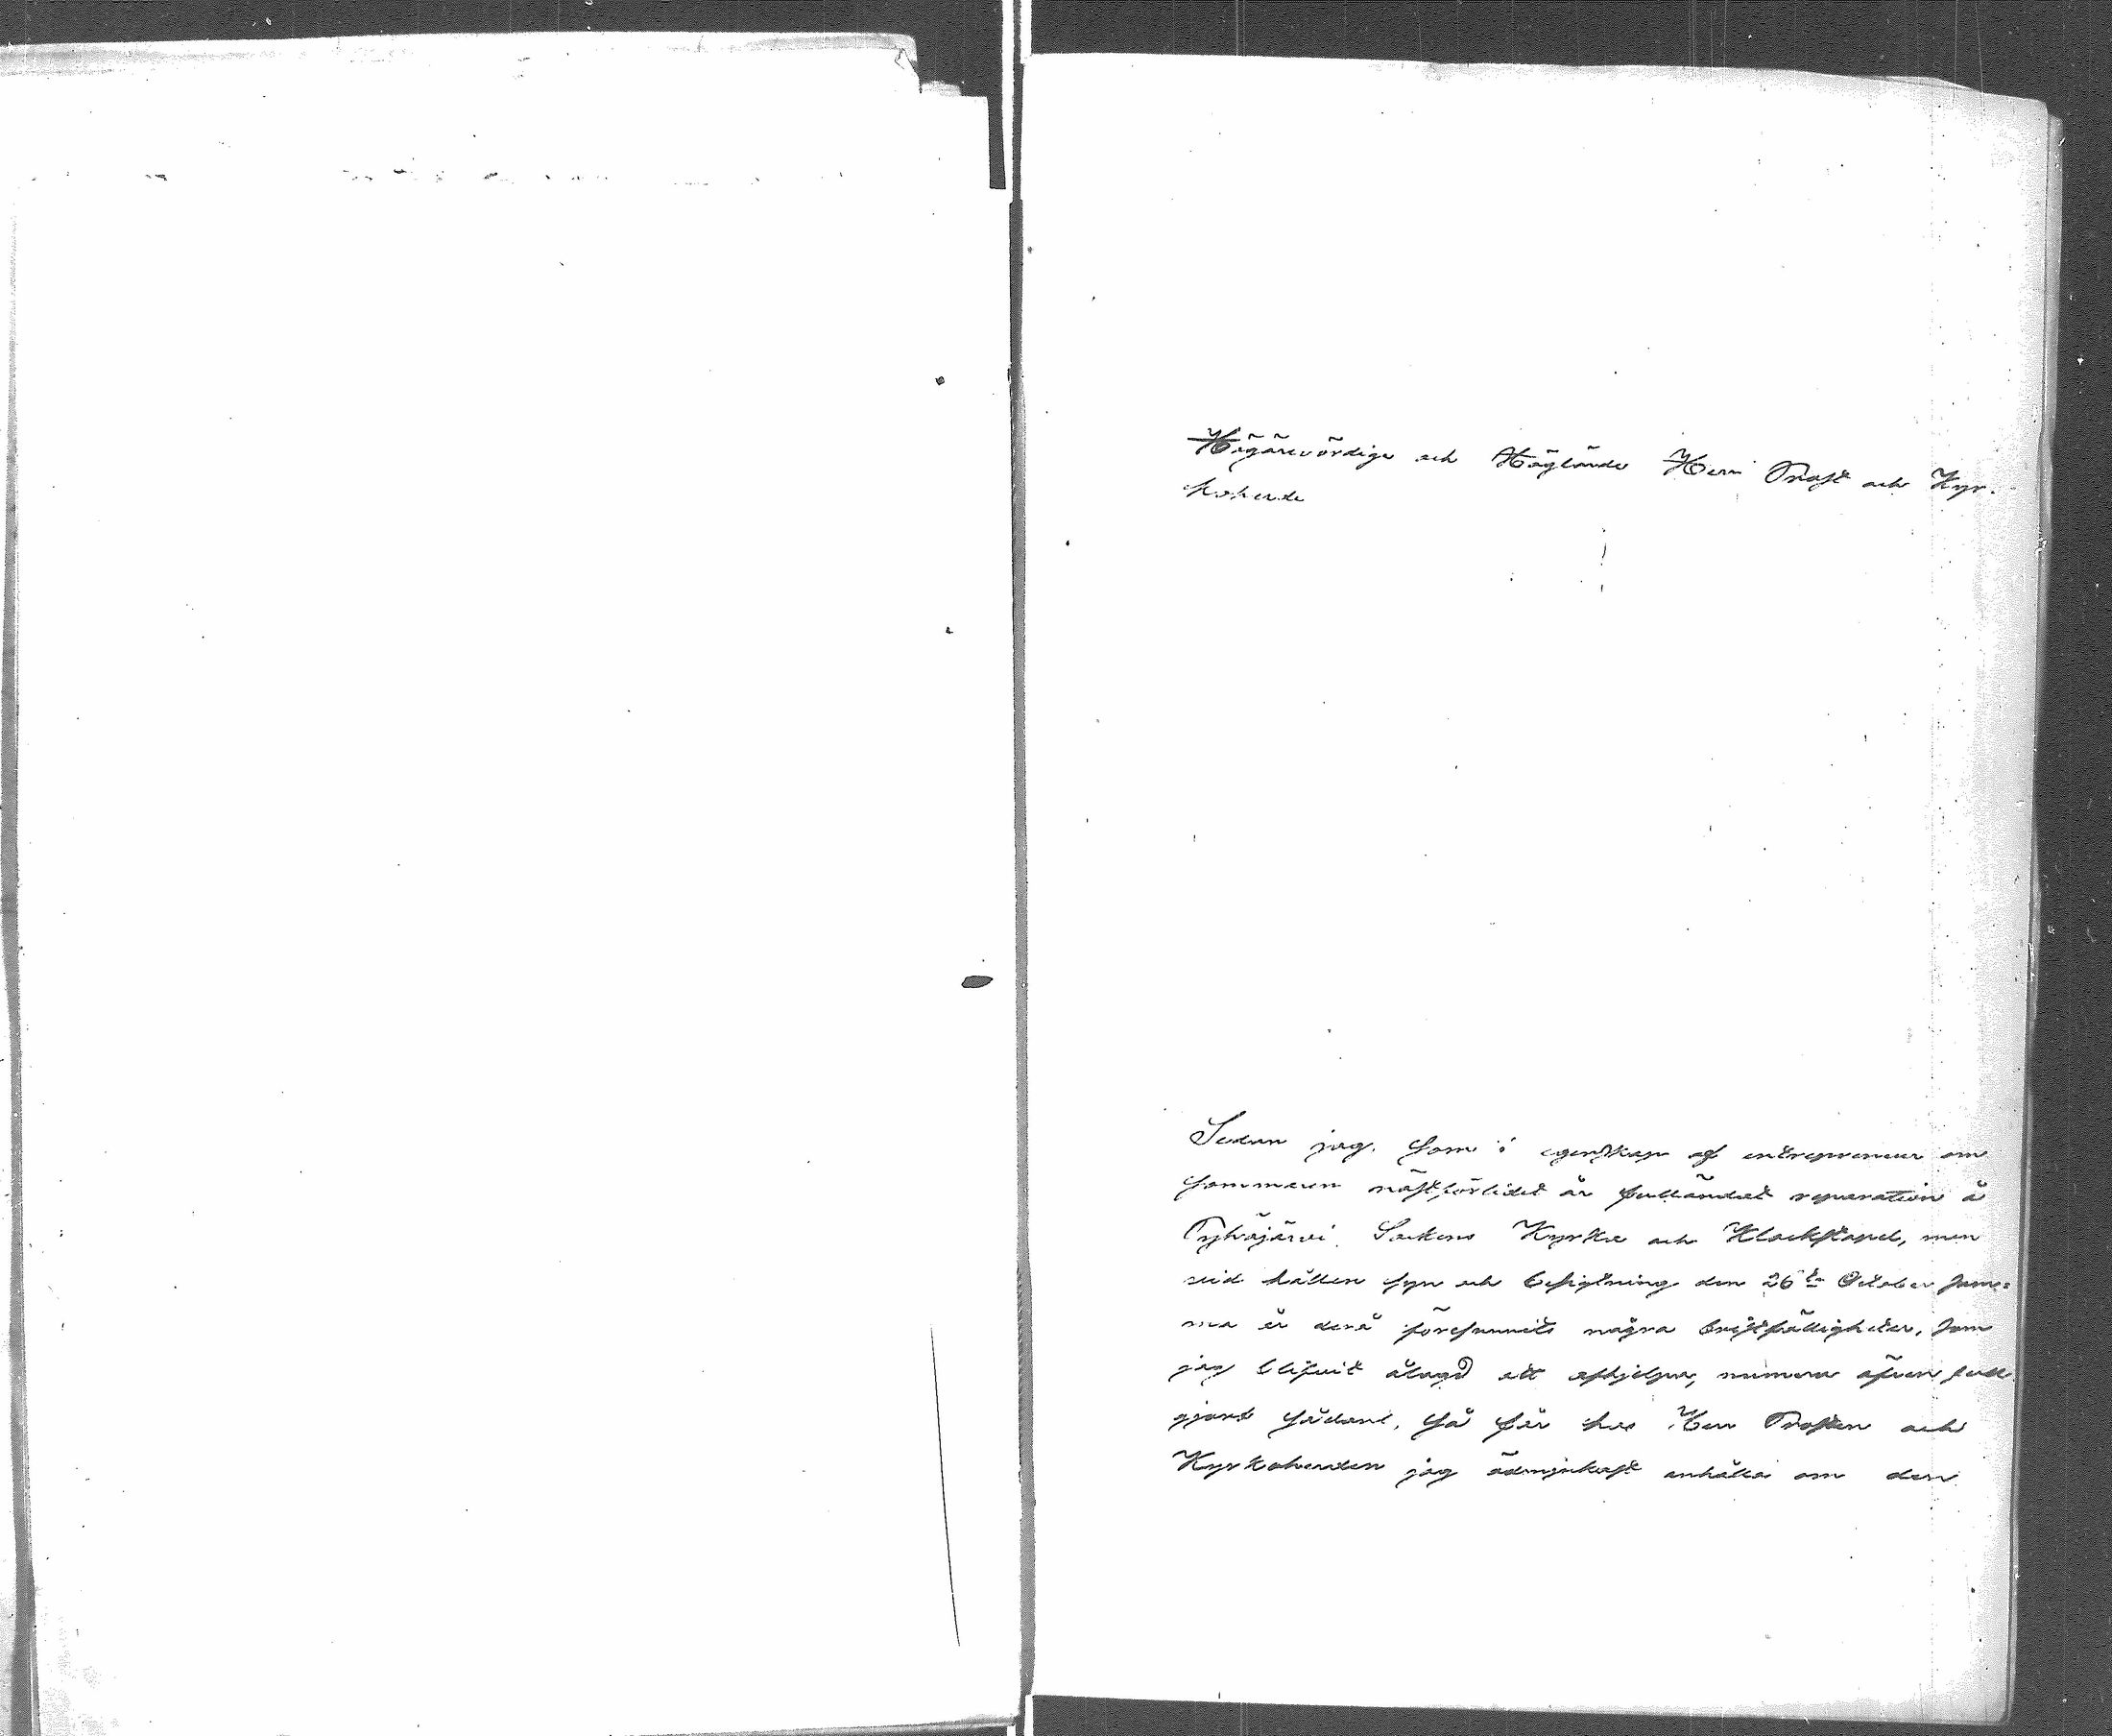 Högärevördige och Höglärde Herr Prost och Kyr-
koherde
!
Sedan jag, som i egenskap af entrepreneur om
sommaren nästförlidet år fulländat reparation å
Pyhäjärvi Sockens Kyrka och Klockstapel, men
vid hållen syn och besigtning den 26te October sam=
ma år derå förefunnits några bristfälligheter, som
jag blifvit ålagd att afhjelpa, numera äfven full-
gjort sådant, så får hos Herr Prosten och
Kyrkoherden jag ödmjukast anhålla om den